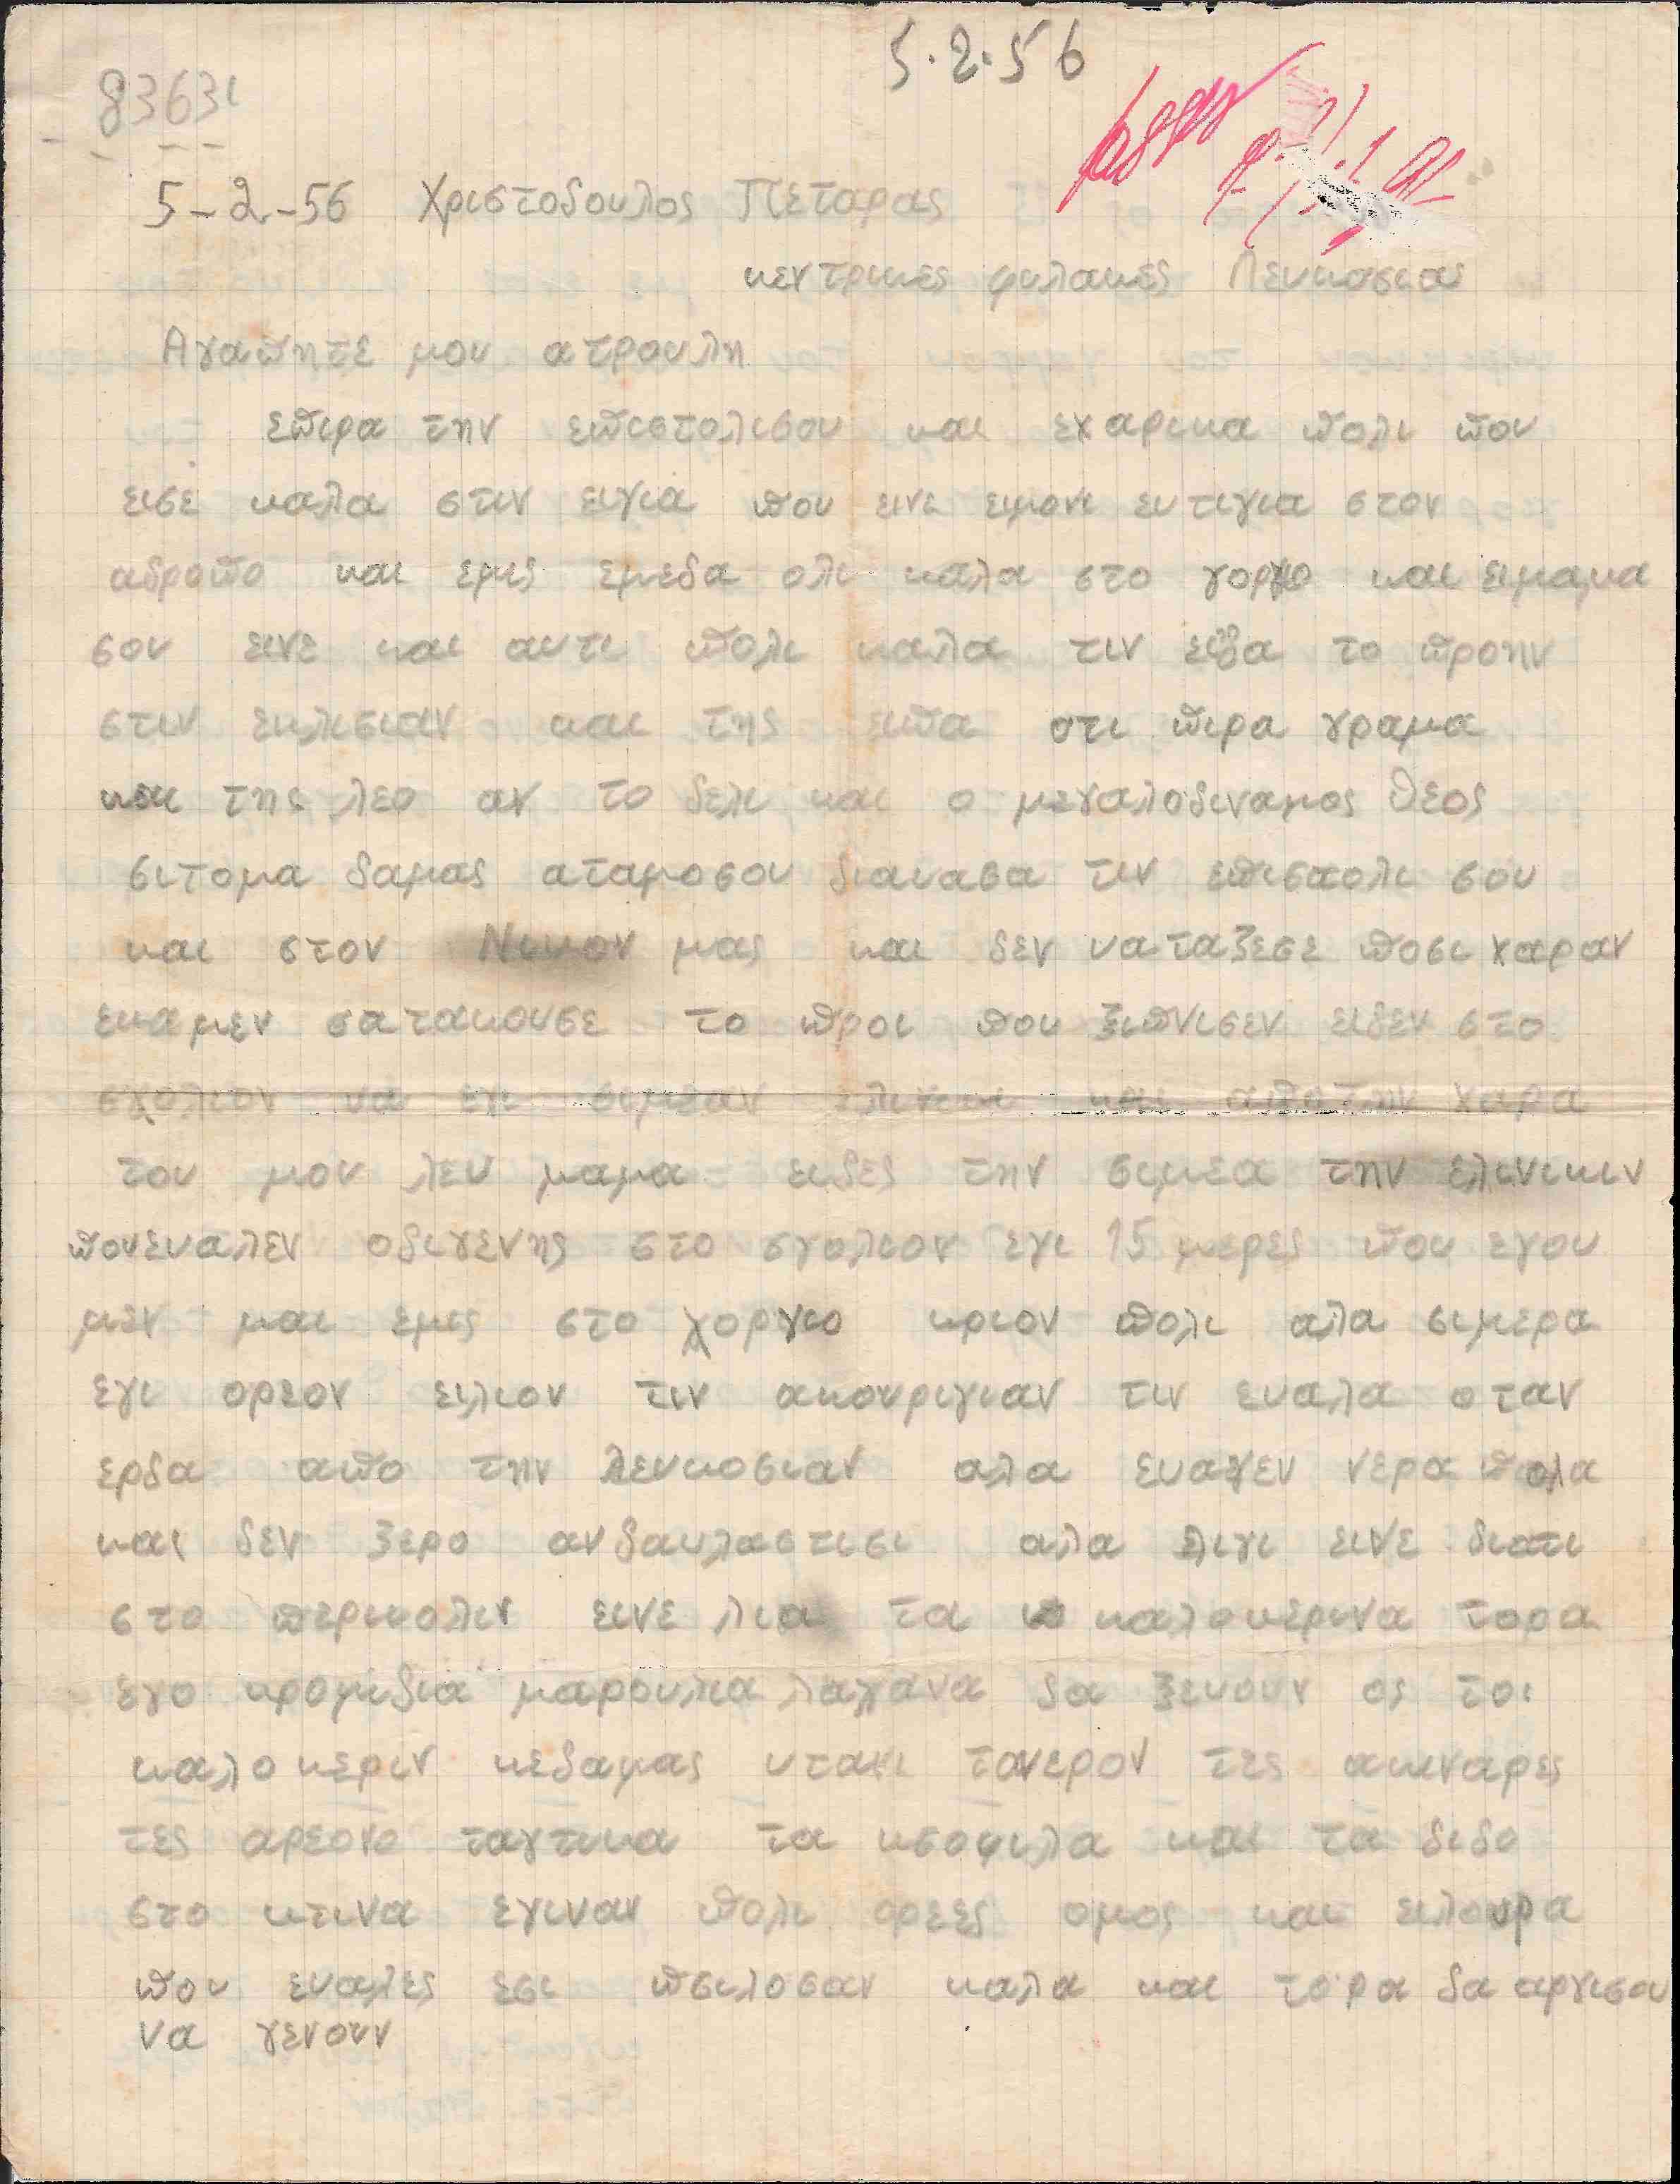 5.2.56
83631
5-2-56 Χριστοδουλος Πεταρας
κεντρικες φυλακες Λευκοσιας
Αγαπητε μου ατρουλη
επιρα την επιστολισου και εχαρικα πολι που
εισε καλα στιν ειγια που εινε ειμονι ευτιγια στον
αδροπο και εμις εμεδα ολι καλα στο γορκο και ειμαμα
σου εινε και αυτι πολι καλα τιν ειδα το προην
στιν εκλισιαν και της ειπα οτι πιρα γραμα
και της λεο αν το δελι και ο μεγαλοδιναμος θεος
σιτομα δαμας αταμοσου διαυασα τιν επιστολι σου
και στον Νικον μας και δεν υαταζεσε ποσι χαραν
εκαμεν σατακουσε το προι που ξιπνισεν ειδεν στο
σχολιον να εχι σιμεαν ελινικι και απο την χαρα
του μου λεν μαμα ειδες την σιμεα την ελινικιν
πουευαλεν οδιγενης στο σγολιον εγι 15 μερες που εγου
μεν και εμις στο χοργιο κριον πολι αλα σιμερα
εγι ορεον ειλιον τιν ακουριγιαν τιν ευαλα οταν
ερδα απο την λευκοσιαν αλα ευαγεν νερα πολα
και δεν ξερο ανδαυλαστισι αλα λιγι εινε διατι
στο περιυολιν εινε λια τα καλοκερινα τορα
εγο κρομιδια μαρουλια λαγανα δα ξευουν ος τοι
καλοκεριν κεδαμας υταχι τονερον τες ακιναρες
τες αρεονο ταγτικα τα κσοφιλα και τα διδο
στο κτινα εγιναν πολι ορεες ομος και ειλουρα
που ευαλες εσι πσιλοσαν καλα και τορα δα αργισου
να γενουν